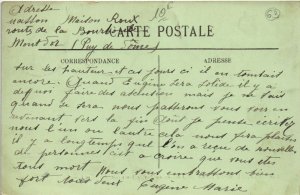 Adresse
nasson Maison Roux 19c 63
route de la Bourboule
CARTE POSTALE
Mont Dor (Puy de Dôme)
CORRESPONDANCE ADRESSE
sur les hauteurs et ces jours ci il en tombait
encore. Quand Eugène sera solide il y a
depuis faire des je ne sais
quand se sera nous passerons vous voir en
revenant vers la fin Août je pense écrivez
nous l'un ou l'autre cela nous fera plaisir
il y a longtemps que l'on a reçu de nouvelles
de personnes c'est a croire que vous êtes
tous mort Nous vous embrassons bien
fort tous deux Eugène Marie